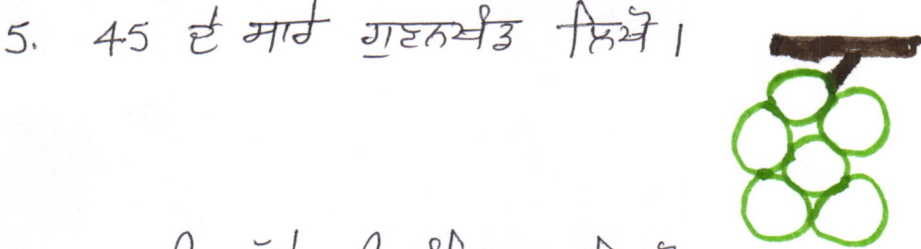 5. 45 ਦੇ ਸਾਰੇ ਗੁਣਨਖੰਡ ਲਿਖੋ।